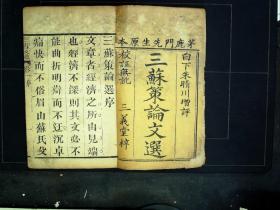 茅鹿門先生原本
白下朱晴川增評
三蘇策論文選
校註無訛　三義堂梓
三蘇策論選序
文章者經濟之所由見端
也經濟不深則其文必不
能曲折明辯而不迂沉卓
痛快而不俗眉山蘇氏父